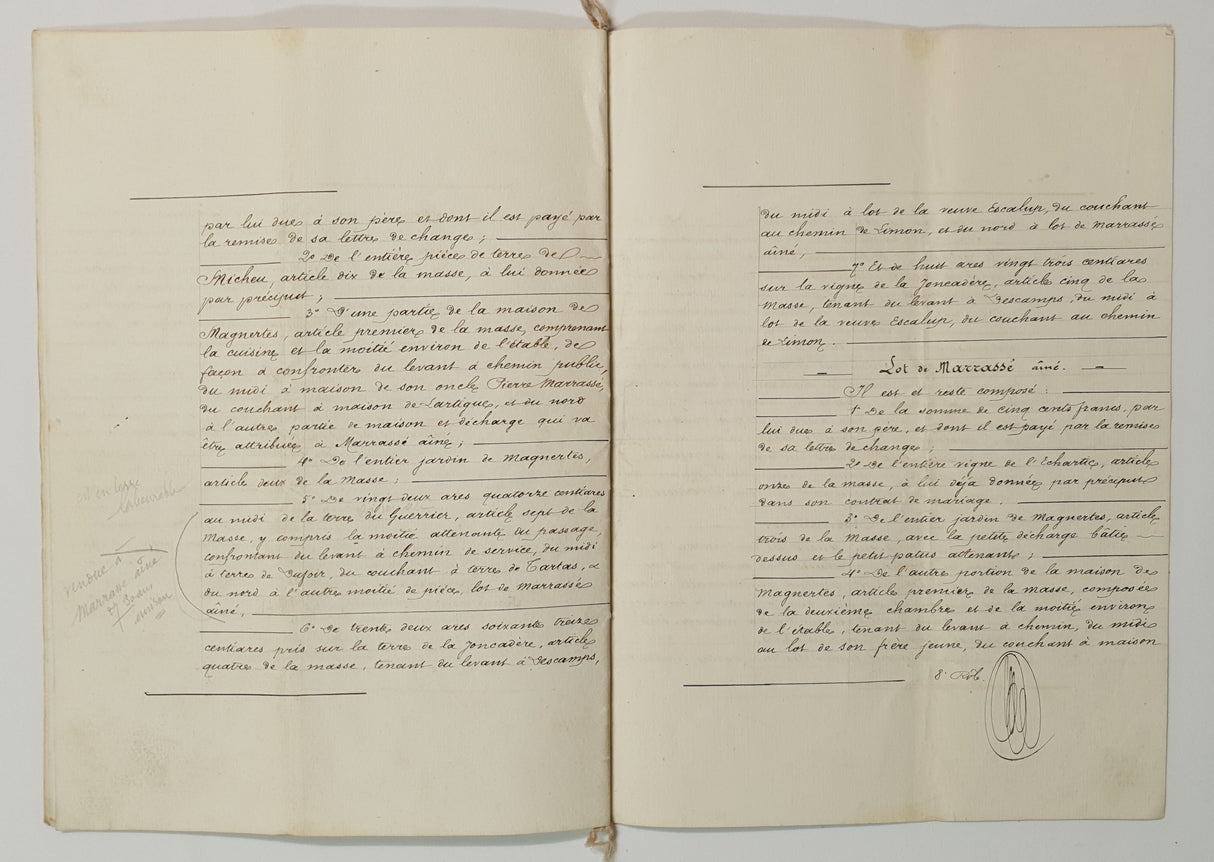 par lui dues à son père et dont il est payé par
la remise de sa lettre de change ;
2° De l'entière pièce de terre de
Micheu, article dix de la masse, à lui donnée
par préciput ;
3° D'une partie de la maison de
Magnertes, article premier de la masse, comprenant
la cuisine et la moitié environ de l'étable, de
façon à confronter du levant à chemin public,
du midi à maison de son oncle Pierre Marrassé,
du couchant à maison de Lartigue, et du nord
à l'autre partie de maison et décharge qui va
être attribuée à Marrassé aîné ;
4° De l'entier jardin de Magnertes,
article deux de la Masse ;
5° De vingt deux ares quatorze centiares
au midi de la terre du Guerrier, article sept de la
Masse, y compris la moitié attenante au passage,
confrontant du levant à chemin de service, du midi
à terre de Dufoir, du couchant à terre de Tartas, &
du nord à l'autre moitié de pièce, lot de Marrassé
aîné,
6° De trente deux ares soixante treize
centiares pris sur la terre de la Joncadère, article
quatre de la masse, tenant du levant à Descamps,
en terre
labourable
vendue à
Marrassé aîné
du midi à lot de la veuve Escalup, du couchant
au chemin de Limon, et du nord à lot de Marrassé
aîné,
7° Et de huit ares vingt trois centiares
sur la vigne de la Joncadère, article cinq de la
Masse, tenant du levant à Descamps, du midi à
lot de la veuve Escalup, du couchant au chemin
de Limon.
Lot de Marrassé aîné.
Il est et reste composé :
1° De la somme de cinq cents francs, par
lui due à son père, et dont il est payé par la remise
de sa lettre de change ;
2° De l'entière vigne de l'Echartic, article
onze de la masse, à lui déja donnée par préciput
dans son contrat de mariage.
3° De l'entier jardin de Magnertes, article
trois de la Masse, avec la petite décharge bâtie
dessus et le petit patus attenant ;
4° De l'autre portion de la maison de
Magnertes, article premier de la masse, composée
de la deuxième chambre et de la moitié environ
de l'étable, tenant du levant à chemin, du midi
au lot de son frère jeune, du couchant à maison
8° Rôle